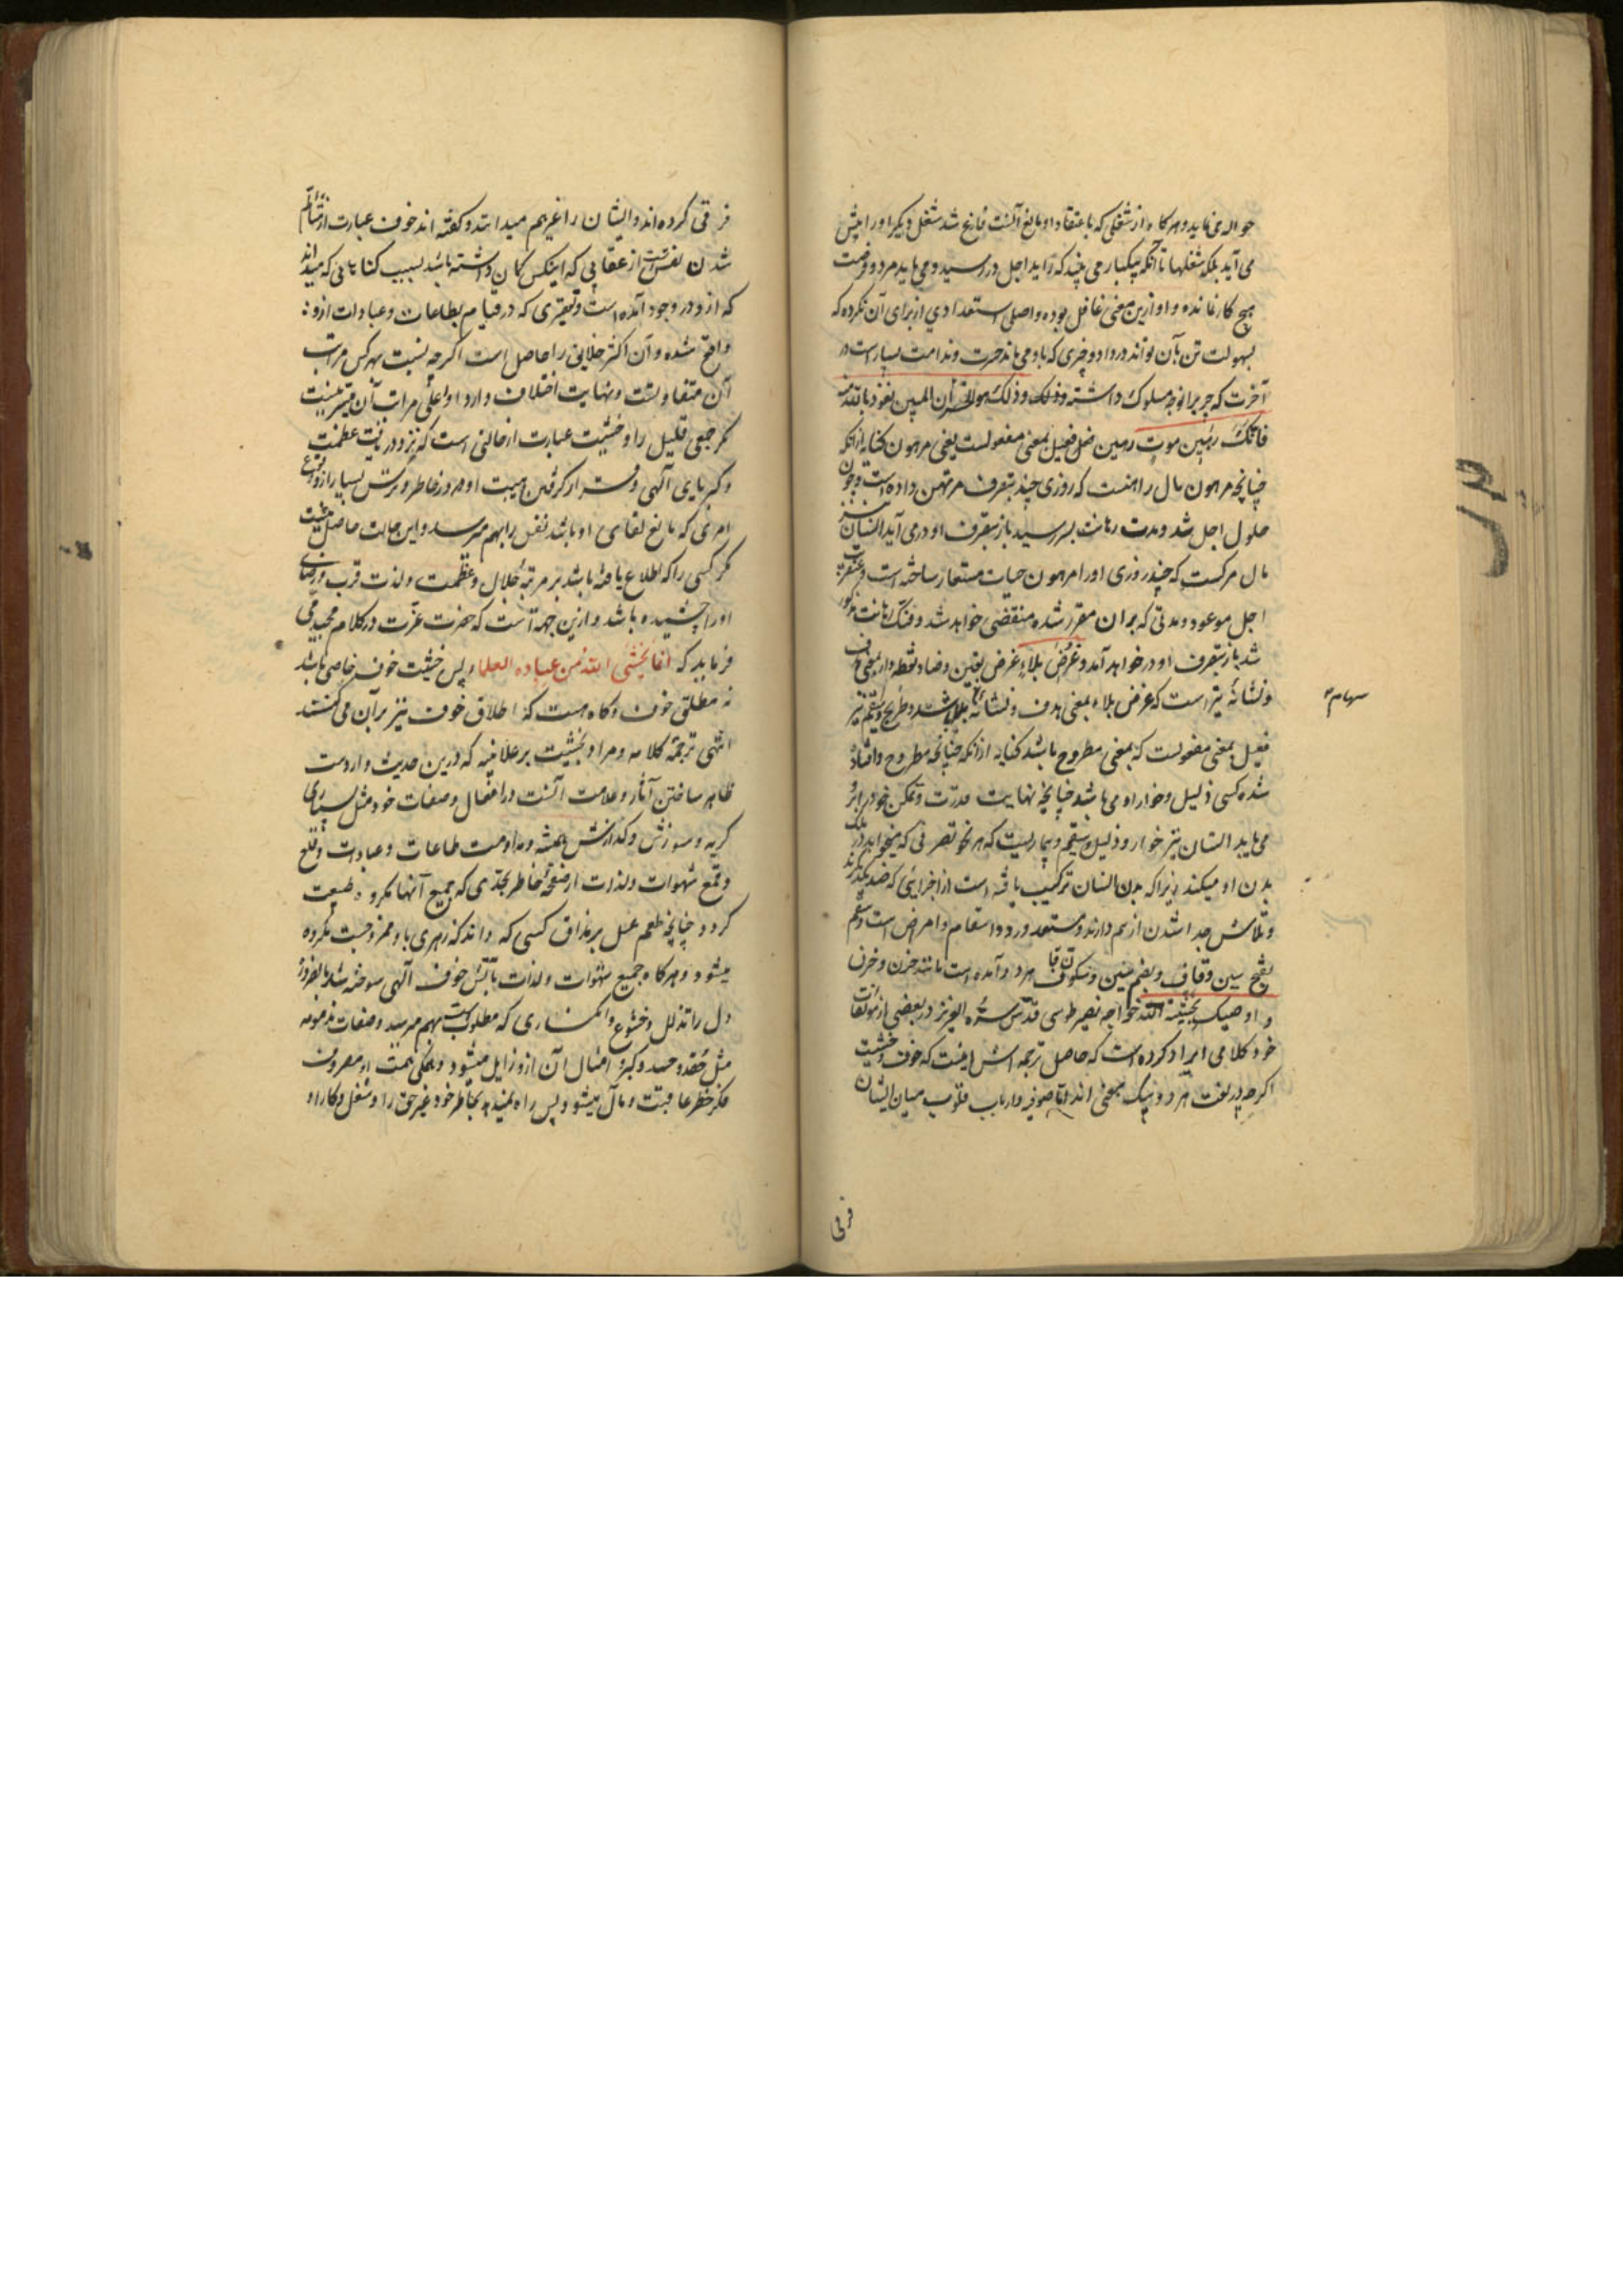 حواله می‌نماید و هرگاه از شغلی که باعتقاد او مانع آنست فارغ شد شغل دیگر او را پیش
می‌آید بلکه شغلها تا آنکه بیکبار می‌بیند که زاید اجل در رسید و می‌باید مرد و فرصت
هیچ کار نمانده و او ازین معنی غافل بوده و اصلا استعدادی از برای آن نکرده که
بسهولت تن بآن تواند در داد و چیزی که با او می‌ماند حسرت و ندامت بسیار است در
آخرت که جریرا نوجه سلوک داشته و ذلک هو الخسران المبین نعوذ بالله منه
فانک رهین موت رهین فعیل بمعنی مفعولست یعنی مرهون کنایه از آنکه
چنانچه مرهون مال راهنست که روزی چند بتصرف مرتهن داده است و چون
حلول اجل شد و مدت رهانت بسر رسید باز بتصرف او در می‌آید انسان نیز
مال مرگست که چند روزی او را مرهون حیات مستعار ساخته است و عنقریب
اجل موعود و مدتی که بر آن مقرر شده منقضی خواهد شد و فک رهانت مذکور
شد باز بتصرف او در خواهد آمد و غرض بلاء غرض بغین و ضاد نقطه دار بمعنی هدف
و نشانهٔ تیر است که غرض بلاء بمعنی هدف و نشانه سهام بلا باشد و طریح و سقیم نیز
سهام
فعیل بمعنی مفعولست که بمعنی مطروح باشد کنایه از آنکه چنانچه مطروح و افتاده
شده کسی ذلیل و خوار او می‌باشد چنانچه نهایت قدرت و تمکن خود بر او
می‌یابد انسان نیز خوار و ذلیل سقیم و بیماریست که هر نحو تصرفی که میخواهد در
بدن او میکند زیرا که بدن انسان ترکیب یافته است از اجزایی که ضد یکدیگرند
و تلاش جدا شدن از هم دارند و مستعد ورود اسقام و امراض است و سقم
بفتح سین و قاف و بضم سین و سکون قاف هر دو آمده است مانند حزن و حزن
و اوصیک بخشیة الله خواجه نصیر طوسی قدس سره العزیز در بعضی از مؤلفات
خود کلامی ایراد کرده است که حاصل ترجمه اش اینست که خوف و خشیت
اگر چه در لغت هر دو بیک معنی اند اما صوفیه و ارباب قلوب میان ایشان
فرقی
فرقی کرده‌اند و ایشان را غیر هم میدانند و گفته اند خوف عبارت از متألم
شدن نفس است از عقابی که اینکس گمان داشته باشد بسبب گناهانی که میداند
که از او در وجود آمده است و تقصیری که در قیام بطاعات و عبادات ازو
واقع شده و آن اکثر خلایق را حاصل است اگر چه نسبت بهر کس مراتب
آن متفاوتست و نهایت اختلاف دارد و اعلی مراتب آن میسر نیست
مگر جمعی قلیل را و خشیت عبارت از حالتی است که نزد دریافت عظمت
و کبریای آلهی و قرار گرفتن هیبت او در خاطر و ترس بسیار از وقوع
امری که مانع لقای او باشد نفس را بهم می‌رسد و این حالت حاصل نیست
مگر کسی را که اطلاع یافته باشد بر مرتبهٔ جلال و عظمت و لذت قرب و رضای
او را چشیده باشد و ازین جهة است که حضرت عزت در کلام مجید می
فرماید که انما یخشی الله من عباده العلماء پس خشیت خوف خاصی باشد
نه مطلق خوف و گاه هست که اطلاق خوف نیز بر آن می‌کنند
انتهی ترجمة کلامه و مراد بخشیت بر علانیه که درین حدیث وارد است
ظاهر ساختن آثار و علامت آنست در افعال و صفات خود مثل بسیاری
گریه و سوزش و گدازش همیشه و مداومت طاعات و عبادات و قلع
و قمع شهوات و لذات از صفحهٔ خاطر بحدی که جمیع آنها مکروه طبیعت
گردد چنانچه طعم عسل بر مذاق کسی که داند که زهری با او ممزوجست مکروه
میشود و هرگاه جمیع شهوات و لذات بآتش خوف آلهی سوخته شد بالضرورة
دل را تذلل و خشوع و انکساری که مطلوبست بهم می‌رسد و صفات مذمومه
مثل حقد و حسد و کبر و امثال آن ازو زایل میشود و همگی همت او مصروف
فکر خطر عاقبت و مآل میشود پس راه نمیدهد بخاطر خود غیر حق را و شغل و کار او